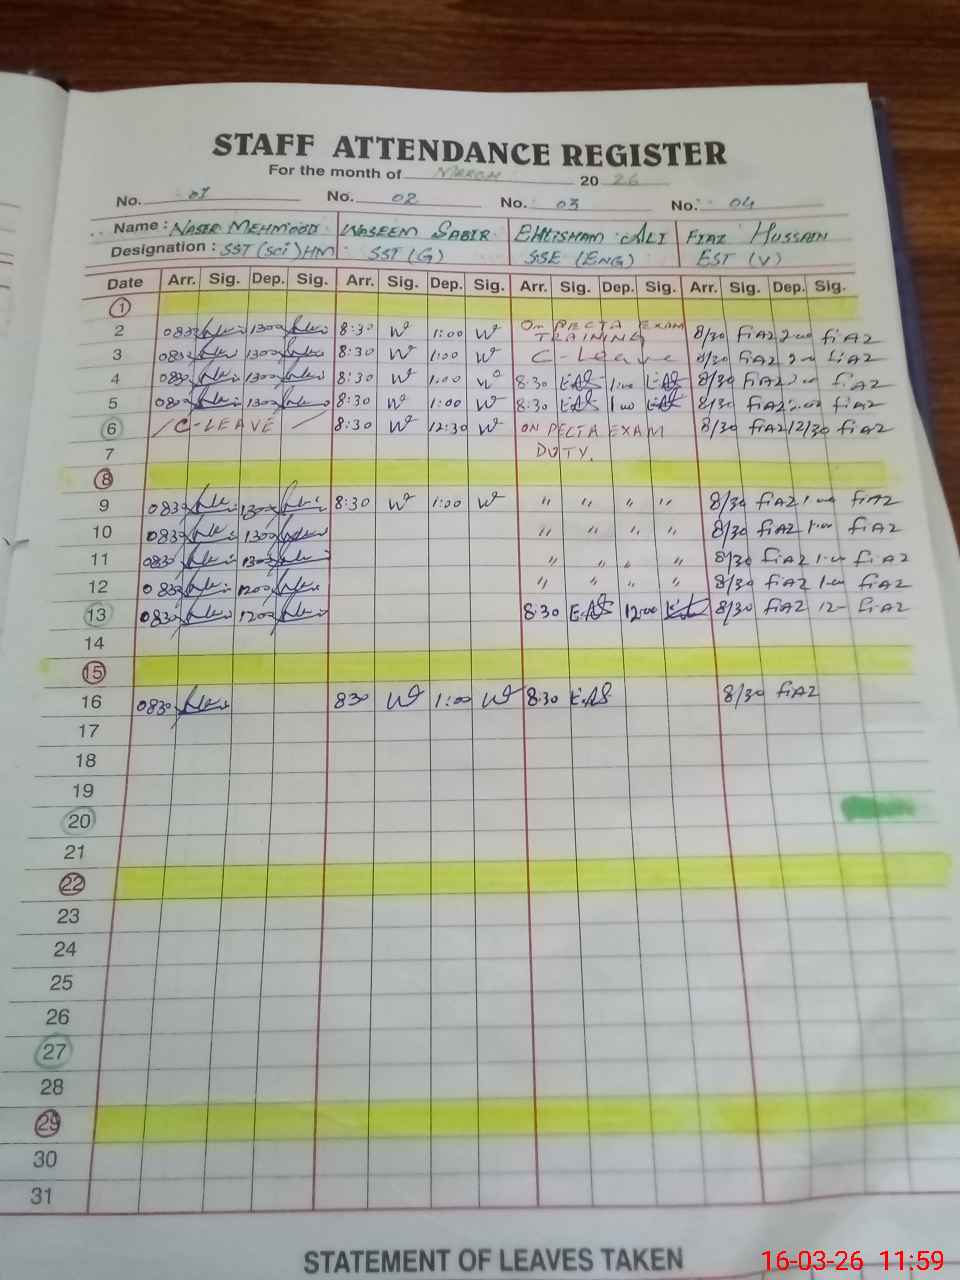 STAFF ATTENDANCE REGISTER
For the month of March 2026
No. 01 No. 02 No. 03 No. 04
Name: NASIR MEHMOOD WASEEM SABIR EHTISHAM ALI FIAZ HUSSAIN
Designation: SST (SCI) HM SST (G) SSE (ENG) EST (V)
Date Arr. Sig. Dep. Sig. Arr. Sig. Dep. Sig. Arr. Sig. Dep. Sig. Arr. Sig. Dep. Sig.
1
2 0830 1300 8:30 W 1:00 W On PECTA EXAM TRAINING 8/30 fiaz 2:00 fiaz
3 0830 1300 8:30 W 1:00 W C-Leave 8/30 fiaz 2:00 fiaz
4 0830 1300 8:30 W 1:00 W 8:30 EAS 1:00 EAS 8/30 fiaz 2:00 fiaz
5 0830 1300 8:30 W 1:00 W 8:30 EAS 1:00 EAS 8/30 fiaz 2:00 fiaz
6 /C-LEAVE/ 8:30 W 12:30 W ON PECTA EXAM 8/30 fiaz 12/30 fiaz
7 DUTY.
8
9 0830 1300 8:30 W 1:00 W " " " " 8/30 fiaz 1:00 fiaz
10 0830 1300 " " " " 8/30 fiaz 1:00 fiaz
11 0830 1300 " " " " 8/30 fiaz 1:00 fiaz
12 0830 1200 " " " " 8/30 fiaz 1:00 fiaz
13 0830 1200 8:30 EAS 12:00 8/30 fiaz 12- fiaz
14
15
16 0830 830 W 1:00 W 8:30 EAS 8/30 fiaz
17
18
19
20
21
22
23
24
25
26
27
28
29
30
31
STATEMENT OF LEAVES TAKEN
16-03-26 11:59